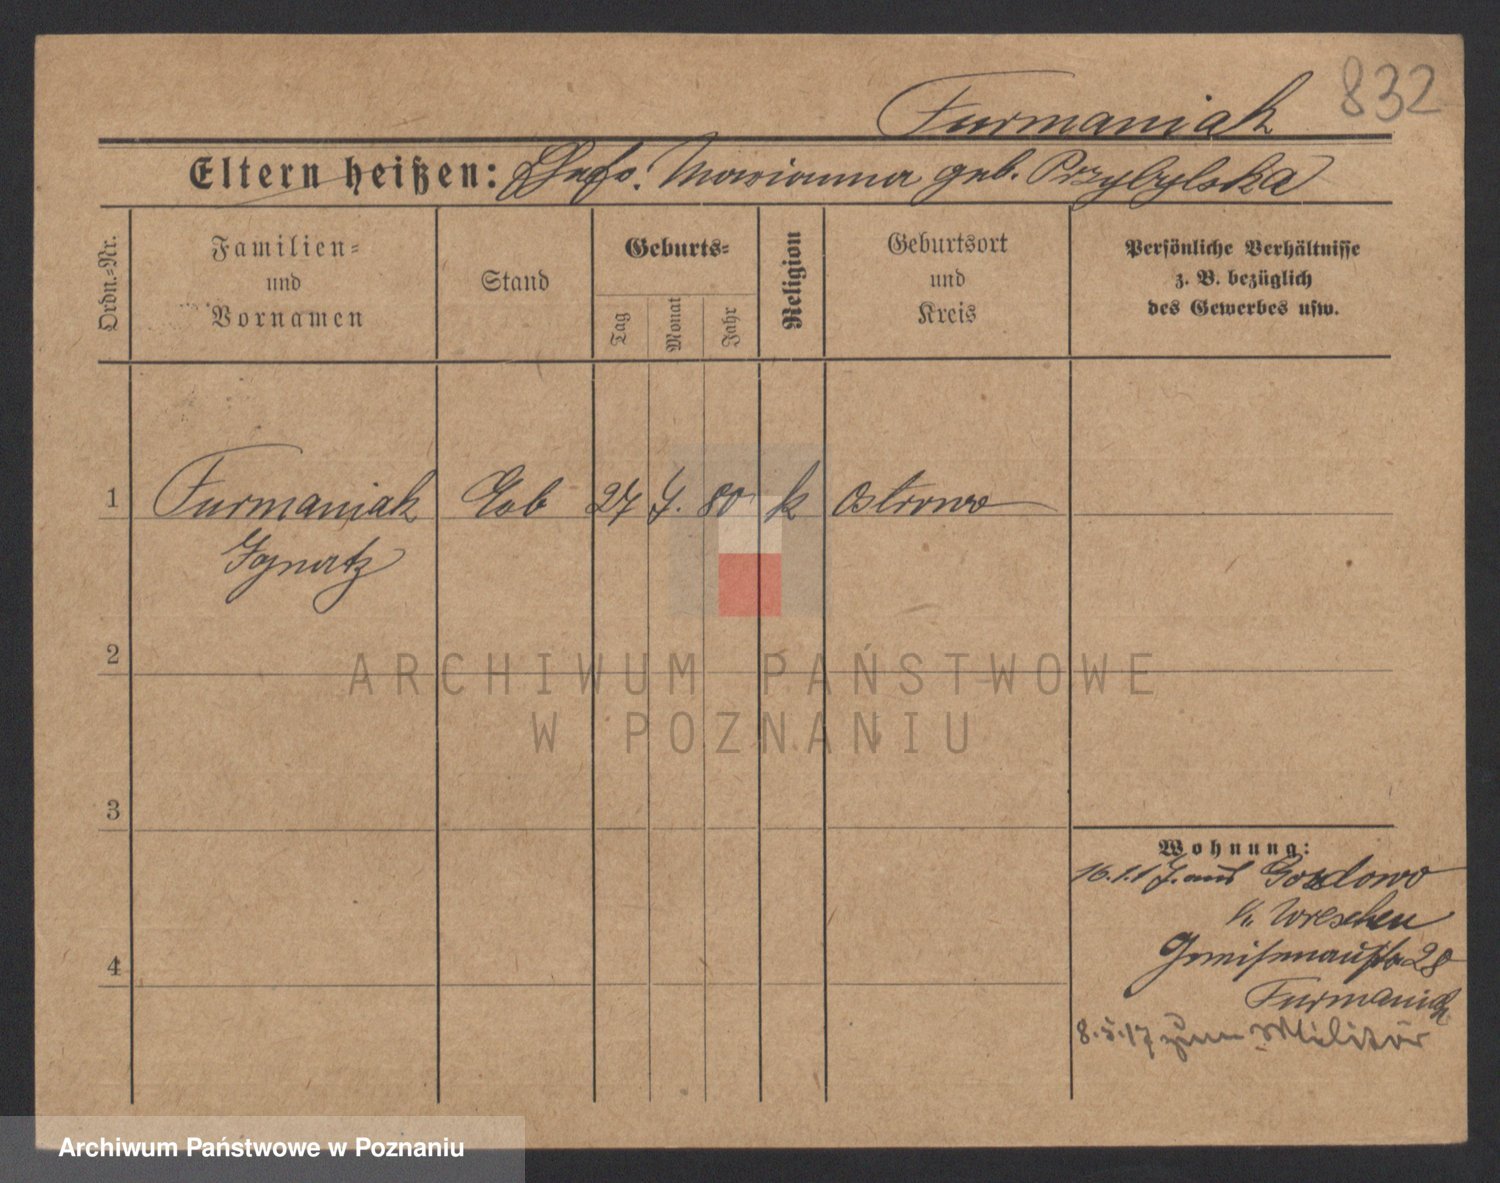 832
Furmaniak
Eltern heißen: Marianna geb. Przybylska
Ordn.-Nr.
Familien-
und
Vornamen
Stand
Geburts-
Tag
Monat
Jahr
Religion
Geburtsort
und
Kreis
Persönliche Verhältnisse
z. B. bezüglich
des Gewerbes usw.
1 Furmaniak 27 7. 80 k Ostrowo
Ignatz
2
3
4
Wohnung:
16.1.17. aus Gozdowo
K. Wreschen
Gneisenaustr 28
Furmaniak
8.5.17 zum Militär
ARCHIWUM PAŃSTWOWE
W POZNANIU
Archiwum Państwowe w Poznaniu